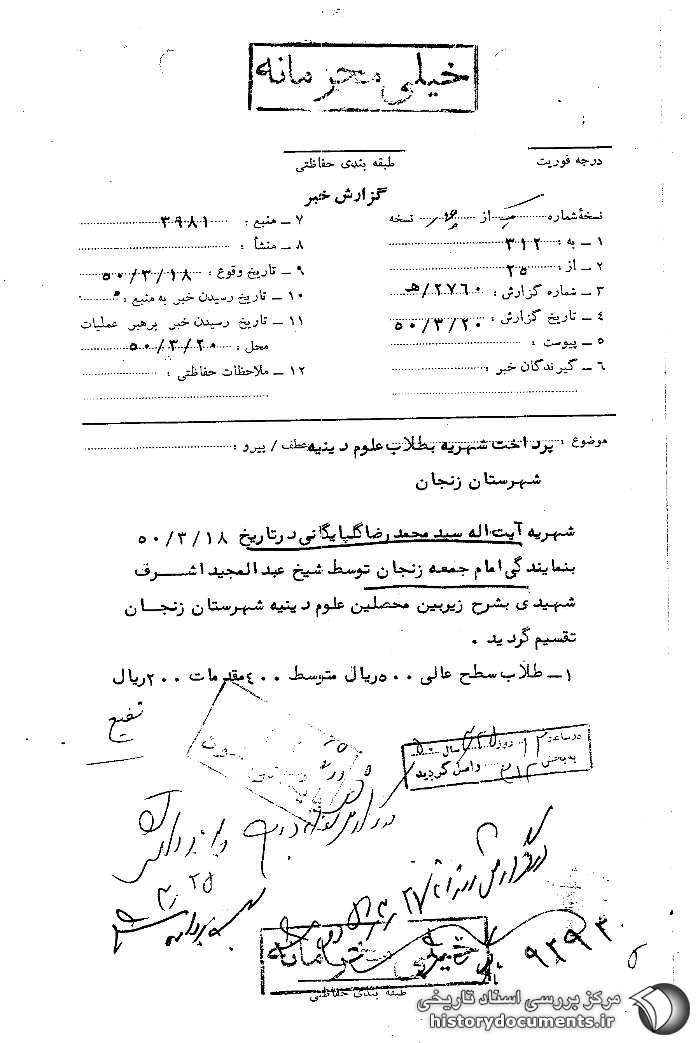 خیلی محرمانه
درجه فوریت
طبقه بندی حفاظتی
گزارش خبر
نسخهٔ شماره یک از نسخه
۱ ـ به : ۳۱۲
۲ ـ از : ۲۵
۳ ـ شماره گزارش : ۲۷۶۰/هـ
۴ ـ تاریخ گزارش : ۵۰/۳/۲۰
۵ ـ پیوست :
۶ ـ گیرندگان خبر :
۷ ـ منبع : ۳۹۸۱
۸ ـ منشأ :
۹ ـ تاریخ وقوع : ۵۰/۳/۱۸
۱۰ ـ تاریخ رسیدن خبر به منبع :
۱۱ ـ تاریخ رسیدن خبر برهبر عملیات
محل : ۵۰/۳/۲۰
۱۲ ـ ملاحظات حفاظتی :
موضوع : پرداخت شهریه بطلاب علوم دینیه عطف / پیرو :
شهرستان زنجان
شهریه آیت اله سید محمد رضا گلپایگانی در تاریخ ۵۰/۳/۱۸
بنمایندگی امام جمعه زنجان توسط شیخ عبدالمجید اشرف
شهیدی بشرح زیر بین محصلین علوم دینیه شهرستان زنجان
تقسیم گردید .
۱ ـ طلاب سطح عالی ۵۰۰ ریال متوسط ۴۰۰ مقدمات ۲۰۰ ریال
در ساعت ۱۲ روز سال ۵۰
به بخش ۳۱۲ واصل گردید
۳/۲۵
۹۲۹۳۰
خیلی محرمانه
طبقه بندی حفاظتی
مرکز بررسی اسناد تاریخی
historydocuments.ir